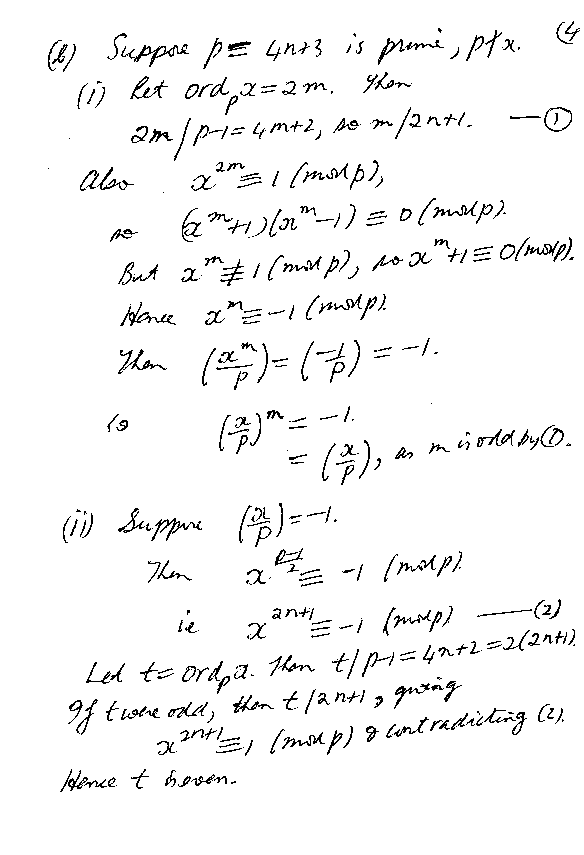 (b) Suppose p = 4n+3 is prime, p∤x. (4
(i) Let ord_p x = 2m. Then
2m / p-1 = 4m+2, so m / 2n+1. —①
Also x^{2m} ≡ 1 (mod p),
so (x^m+1)(x^m-1) ≡ 0 (mod p).
But x^m ≢ 1 (mod p), so x^m+1 ≡ 0 (mod p).
Hence x^m ≡ -1 (mod p).
Then (x^m/p) = (-1/p) = -1.
so (x/p)^m = -1.
= (x/p), as m is odd by ①.
(ii) Suppose (x/p) = -1.
Then x^{(p-1)/2} ≡ -1 (mod p).
ie x^{2n+1} ≡ -1 (mod p) —(2)
Let t = ord_p x. Then t / p-1 = 4n+2 = 2(2n+1).
If t were odd, then t / 2n+1, giving
x^{2n+1} ≡ 1 (mod p), contradicting (2).
Hence t is even.